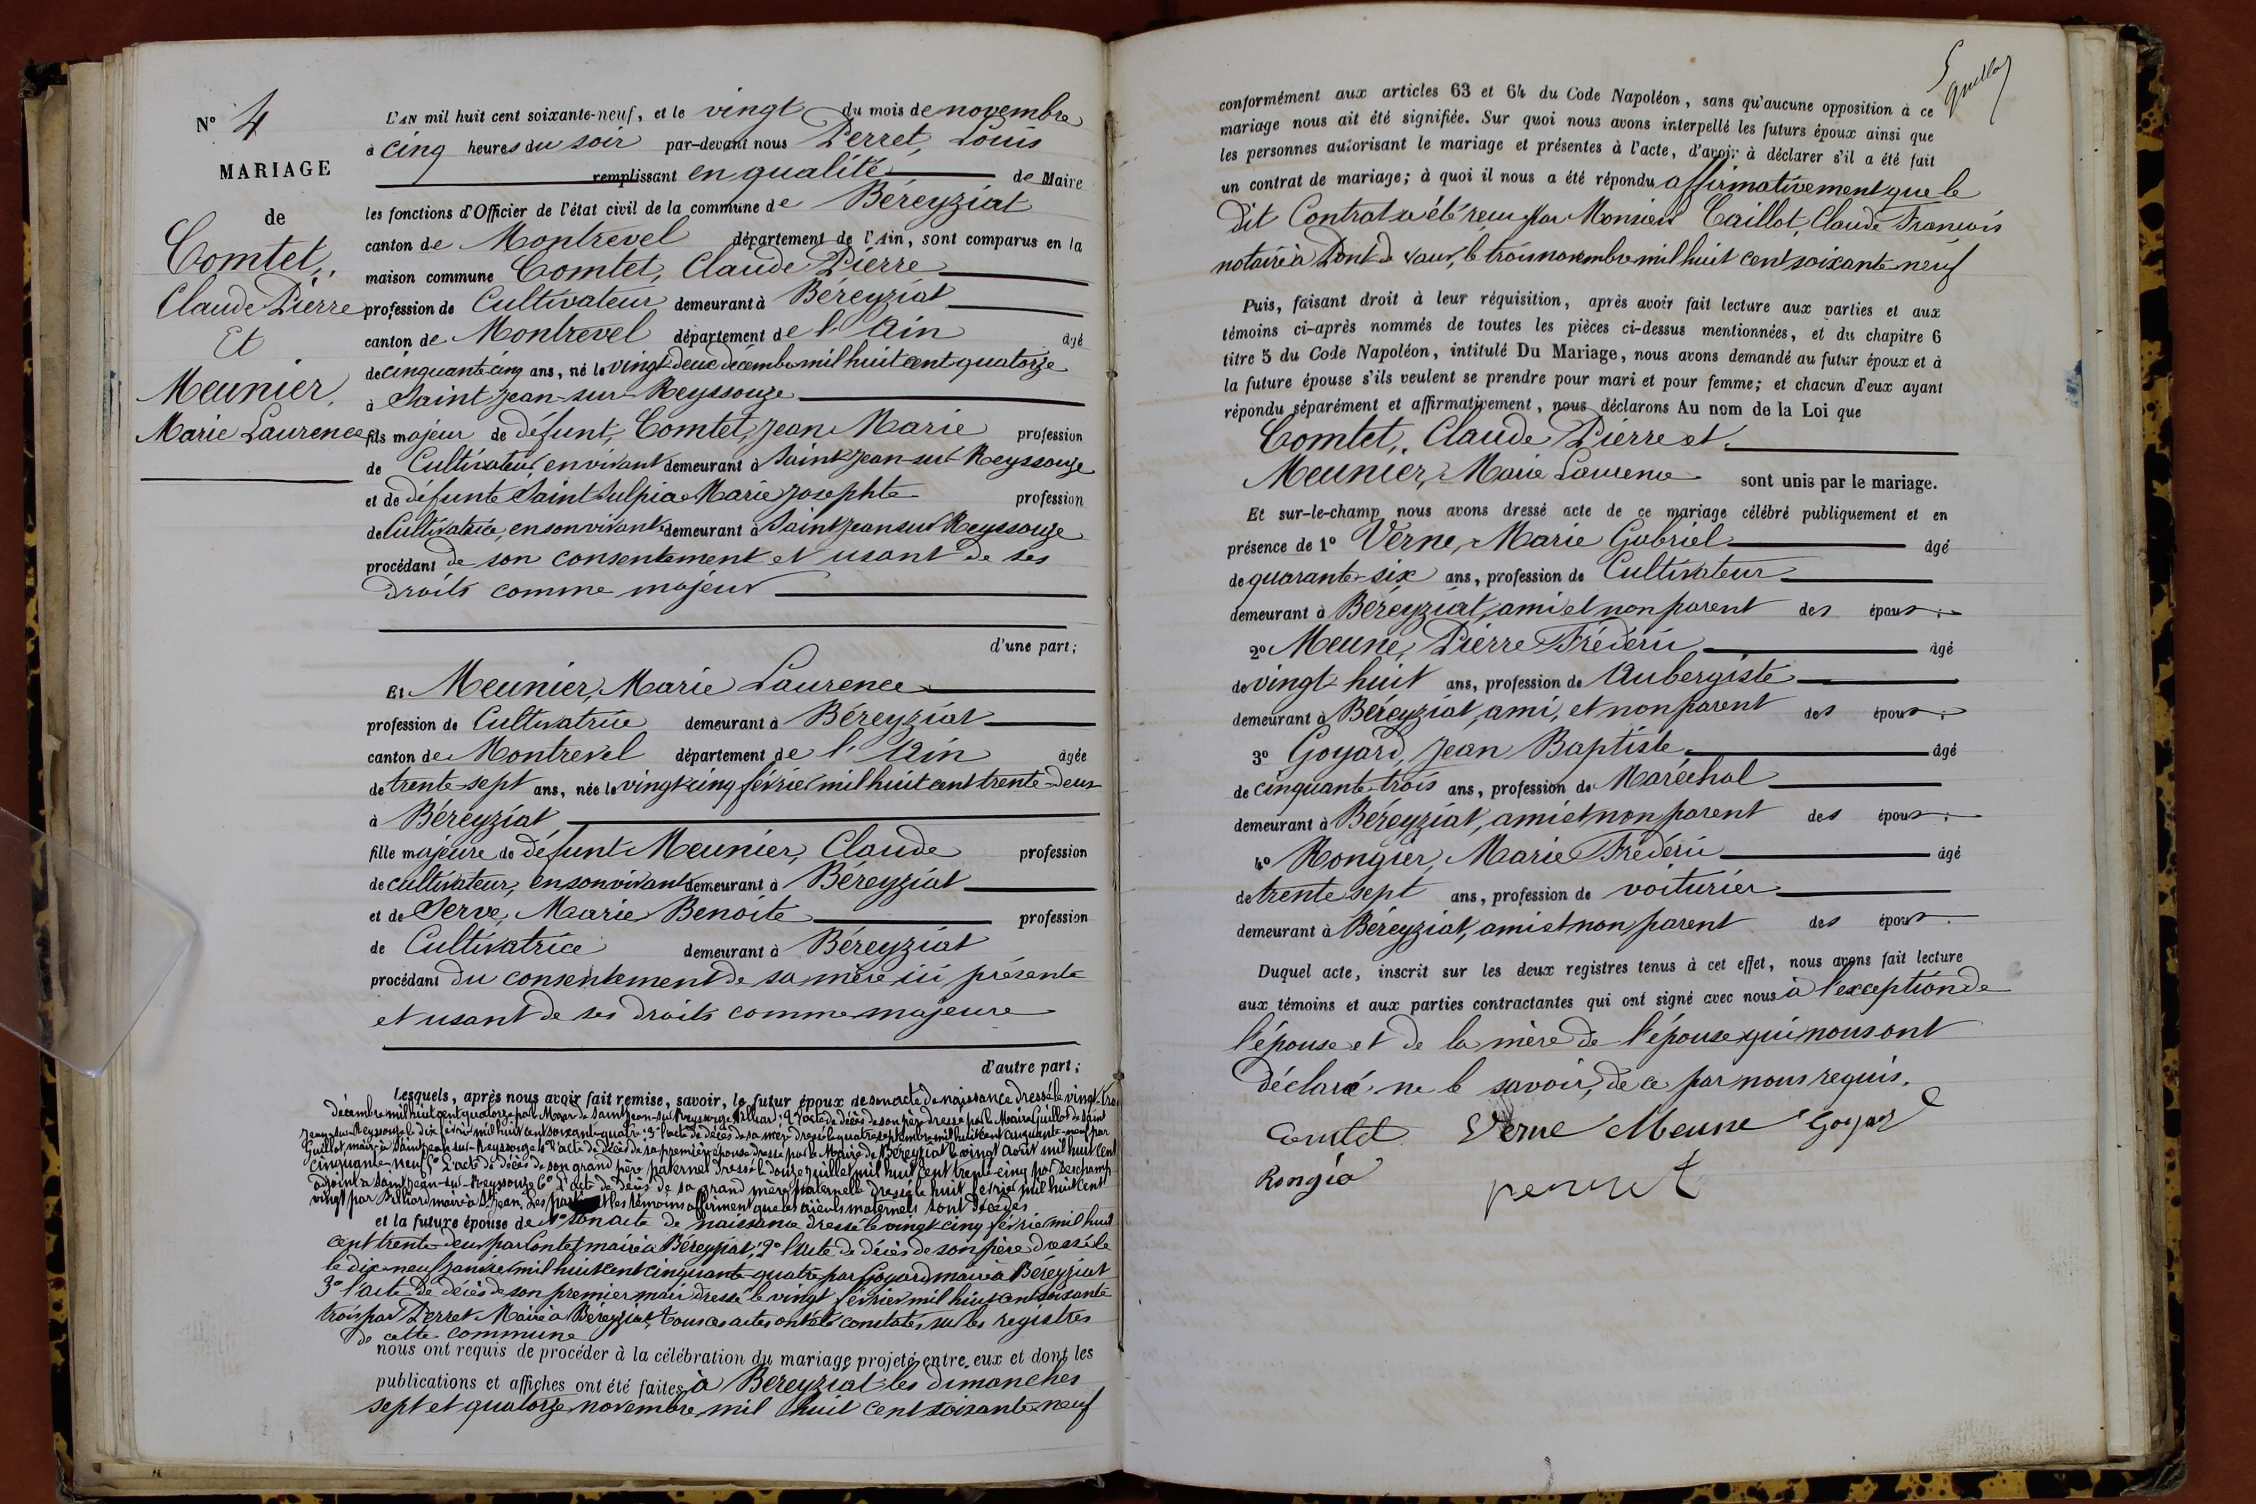 N° 4
MARIAGE
de
Comtet,
Claude Pierre
Et
Meunier,
Marie Laurence
L'AN mil huit cent soixante-neuf, et le vingt du mois de novembre
à cinq heures du soir par-devant nous Perret, Louis
remplissant en qualité de Maire
les fonctions d'Officier de l'état civil de la commune de Béreyziat
canton de Montrevel département de l'Ain, sont comparus en la
maison commune Comtet, Claude Pierre
profession de Cultivateur demeurant à Béreyziat
canton de Montrevel département de l'Ain âgé
de cinquante-cinq ans, né le vingt-deux décembre mil huit cent quatorze
à Saint Jean-sur-Reyssouze
fils majeur de défunt, Comtet, Jean Marie profession
de Cultivateur, en vivant demeurant à Saint Jean-sur-Reyssouze
et de défunte Saint Sulpice Marie Josephte profession
de Cultivatrice, en son vivant demeurant à Saint Jean sur Reyssouze
procédant de son consentement et usant de ses
droits comme majeur
d'une part;
Et Meunier, Marie Laurence
profession de Cultivatrice demeurant à Béreyziat
canton de Montrevel département de l'Ain âgée
de trente-sept ans, née le vingt-cinq février mil huit cent trente-deux
à Béreyziat
fille majeure de défunt Meunier, Claude profession
de cultivateur, en son vivant demeurant à Béreyziat
et de Serve, Marie Benoite profession
de Cultivatrice demeurant à Béreyziat
procédant du consentement de sa mère ici présente
et usant de ses droits comme majeure
d'autre part;
Lesquels, après nous avoir fait remise, savoir, le futur époux de son acte de naissance dressé le vingt-trois
décembre mil huit cent quatorze par le Maire de Saint Jean-sur-Reyssouze Billiard; 2° l'acte de décès de son père dressé par le Maire Guillot de Saint
Jean-sur-Reyssouze le dix février mil huit cent soixante-quatre; 3° l'acte de décès de sa mère dressé le quatre septembre mil huit cent cinquante-neuf par
Guillot, maire à Saint Jean-sur-Reyssouze 4° l'acte de décès de sa première épouse dressé par le Maire de Béreyziat le vingt août mil huit cent
cinquante-neuf 5° l'acte de décès de son grand père paternel dressé le douze juillet mil huit cent trente-cinq par Deschamp
adjoint à Saint Jean-sur-Reyssouze 6° l'acte de décès de sa grand mère paternelle dressé le huit février mil huit cent
vingt par Billiard maire à St Jean. Les parties et les témoins affirment que les aïeuls maternels sont décédés
et la future épouse de 1° son acte de naissance dressé le vingt cinq février mil huit
cent trente-deux par Contet maire à Béreyziat; 2° l'acte de décès de son père dressé le
le dix-neuf janvier mil huit cent cinquante-quatre par Goyard maire à Béreyziat
3° l'acte de décès de son premier mari dressé le vingt février mil huit cent soixante
trois par Perret Maire à Béreyziat, tous ces actes ont été constatés sur les registres
de cette commune
nous ont requis de procéder à la célébration du mariage projeté entre eux et dont les
publications et affiches ont été faites à Béreyziat les dimanches
sept et quatorze novembre mil huit cent soixante-neuf
5
conformément aux articles 63 et 64 du Code Napoléon, sans qu'aucune opposition à ce
mariage nous ait été signifiée. Sur quoi nous avons interpellé les futurs époux ainsi que
les personnes autorisant le mariage et présentes à l'acte, d'avoir à déclarer s'il a été fait
un contrat de mariage; à quoi il nous a été répondu affirmativement que le
dit Contrat a été reçu par Monsieur Caillot, Claude François
notaire à Pont de Vaux, le trois novembre mil huit cent soixante-neuf
Puis, faisant droit à leur réquisition, après avoir fait lecture aux parties et aux
témoins ci-après nommés de toutes les pièces ci-dessus mentionnées, et du chapitre 6
titre 5 du Code Napoléon, intitulé Du Mariage, nous avons demandé au futur époux et à
la future épouse s'ils veulent se prendre pour mari et pour femme; et chacun d'eux ayant
répondu séparément et affirmativement, nous déclarons Au nom de la Loi que
Comtet, Claude Pierre et
Meunier, Marie Laurence sont unis par le mariage.
Et sur-le-champ nous avons dressé acte de ce mariage célébré publiquement et en
présence de 1° Verne, Marie Gabriel âgé
de quarante-six ans, profession de Cultivateur
demeurant à Béreyziat, ami et non parent des époux;
2° Meune, Pierre Fréderic âgé
de vingt-huit ans, profession de Aubergiste
demeurant à Béreyziat, ami, et non parent des époux;
3° Goyard, Jean Baptiste âgé
de cinquante-trois ans, profession de Maréchal
demeurant à Béreyziat, ami et non parent des époux;
4° Rongier, Marie Fréderic âgé
de trente sept ans, profession de voiturier
demeurant à Béreyziat, ami et non parent des époux
Duquel acte, inscrit sur les deux registres tenus à cet effet, nous avons fait lecture
aux témoins et aux parties contractantes qui ont signé avec nous à l'exception de
l'épouse et de la mère de l'épouse qui nous ont
déclaré ne le savoir, de ce par nous requis.
Comtet Verne Meune Goyard
Rongié perret